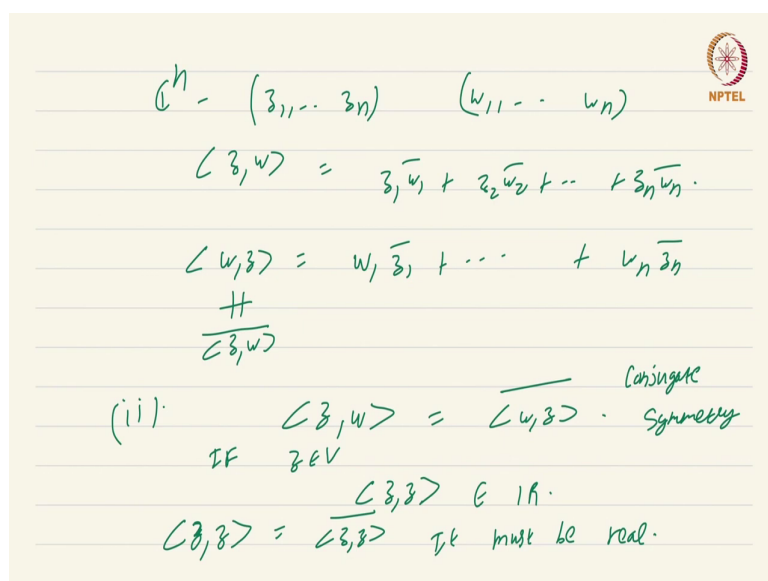 NPTEL
ℂⁿ - (z₁, .. zₙ) (w₁, - - wₙ)
⟨z, w⟩ = z₁w̅₁ + z₂w̅₂ + .. + zₙw̅ₙ.
⟨w, z⟩ = w₁z̅₁ + ... + wₙz̅ₙ
\overline{⟨z, w⟩}
Conjugate
(ii). ⟨z, w⟩ = \overline{⟨w, z⟩}. Symmetry
IF z ∈ V
⟨z, z⟩ ∈ IR.
⟨z, z⟩ = \overline{⟨z, z⟩} It must be real.